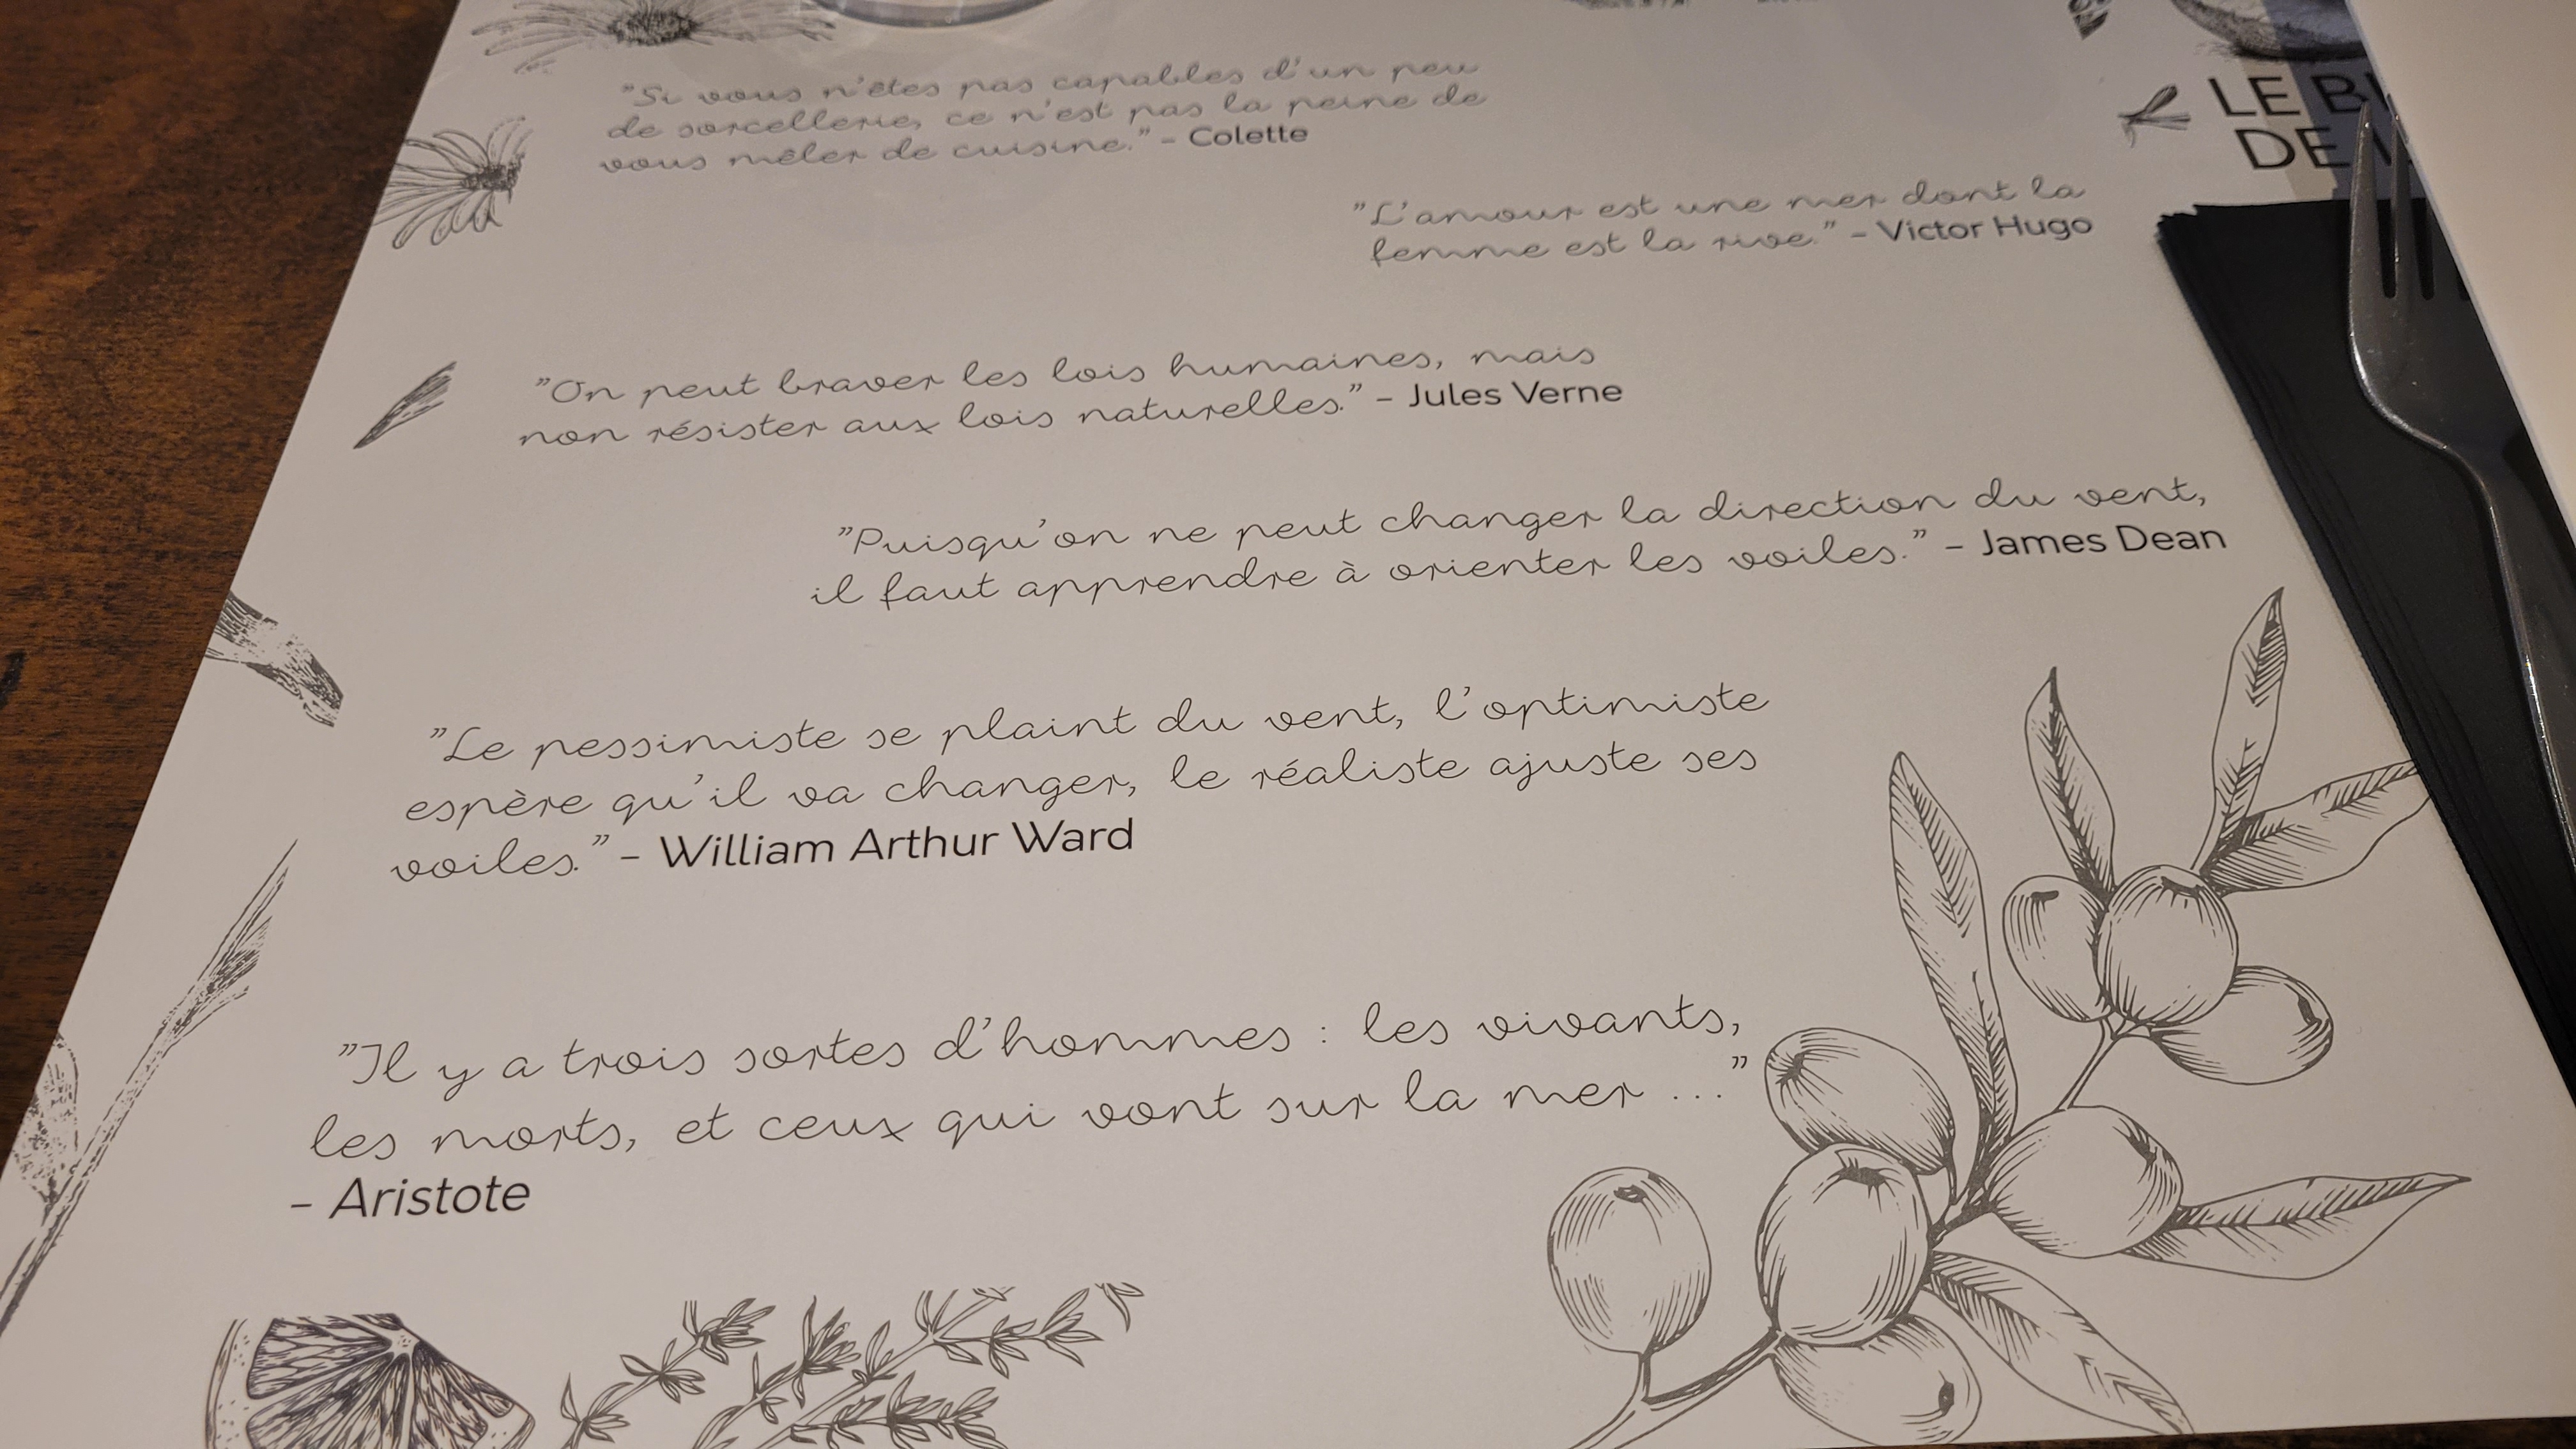 "Si vous n'êtes pas capables d'un peu
de sorcellerie, ce n'est pas la peine de
vous mêler de cuisine." - Colette
LE
DE
"L'amour est une mer dont la
femme est la rive." - Victor Hugo
"On peut braver les lois humaines, mais
non résister aux lois naturelles." - Jules Verne
"Puisqu'on ne peut changer la direction du vent,
il faut apprendre à orienter les voiles." - James Dean
"Le pessimiste se plaint du vent, l'optimiste
espère qu'il va changer, le réaliste ajuste ses
voiles." - William Arthur Ward
"Il y a trois sortes d'hommes : les vivants,
les morts, et ceux qui vont sur la mer ..."
- Aristote